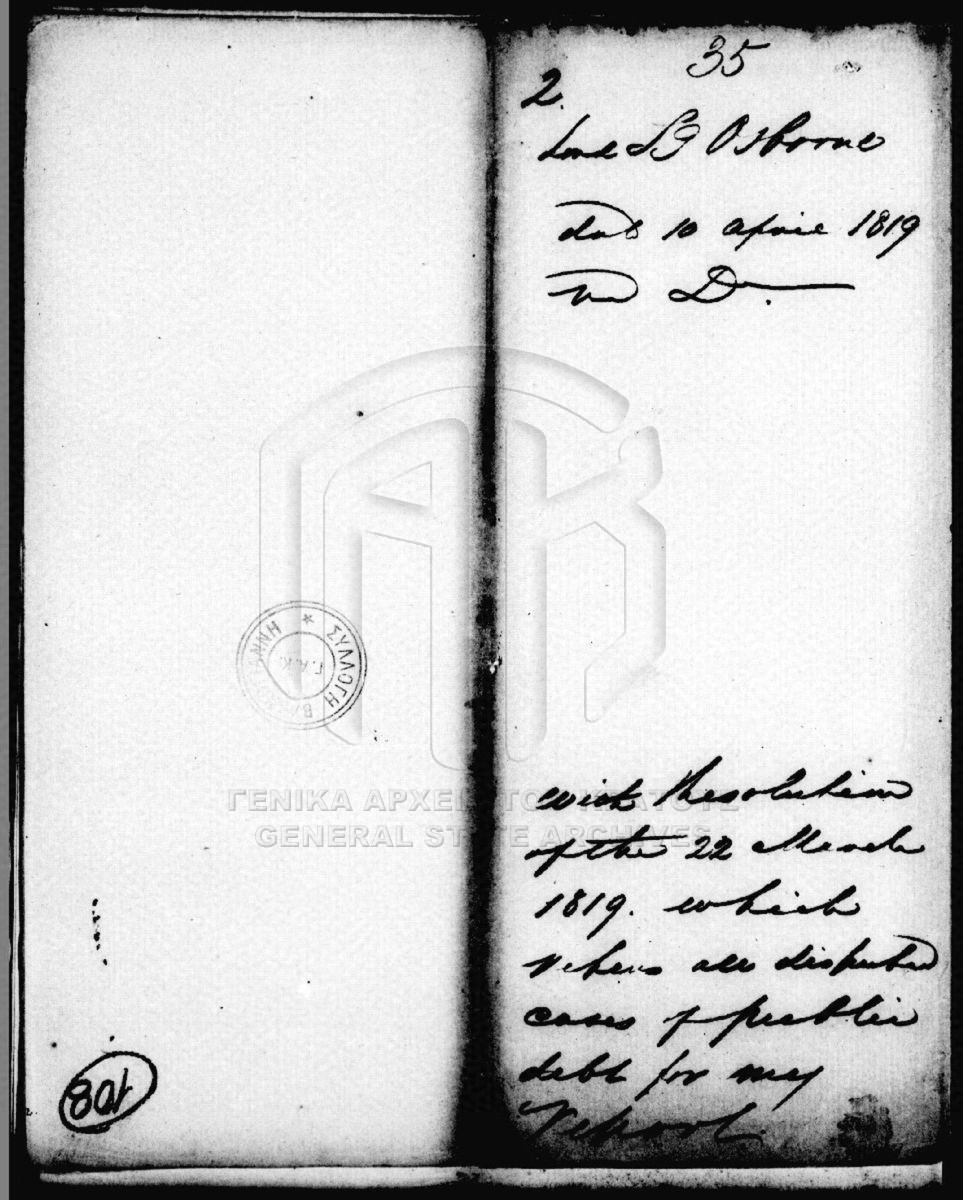 35
2.
Lord S G Osborne
dat 10 April 1819
Recd Do.
with Resolution
of the 22 March
1819. which
refers all disputed
cases of public
debt for my
Report.
108
ΣΥΛΛΟΓΗ ΒΛΑΧΟΓΙΑΝΝΗ
Γ.Α.Κ.
ΓΕΝΙΚΑ ΑΡΧΕΙΑ ΤΟΥ ΚΡΑΤΟΥΣ
GENERAL STATE ARCHIVES